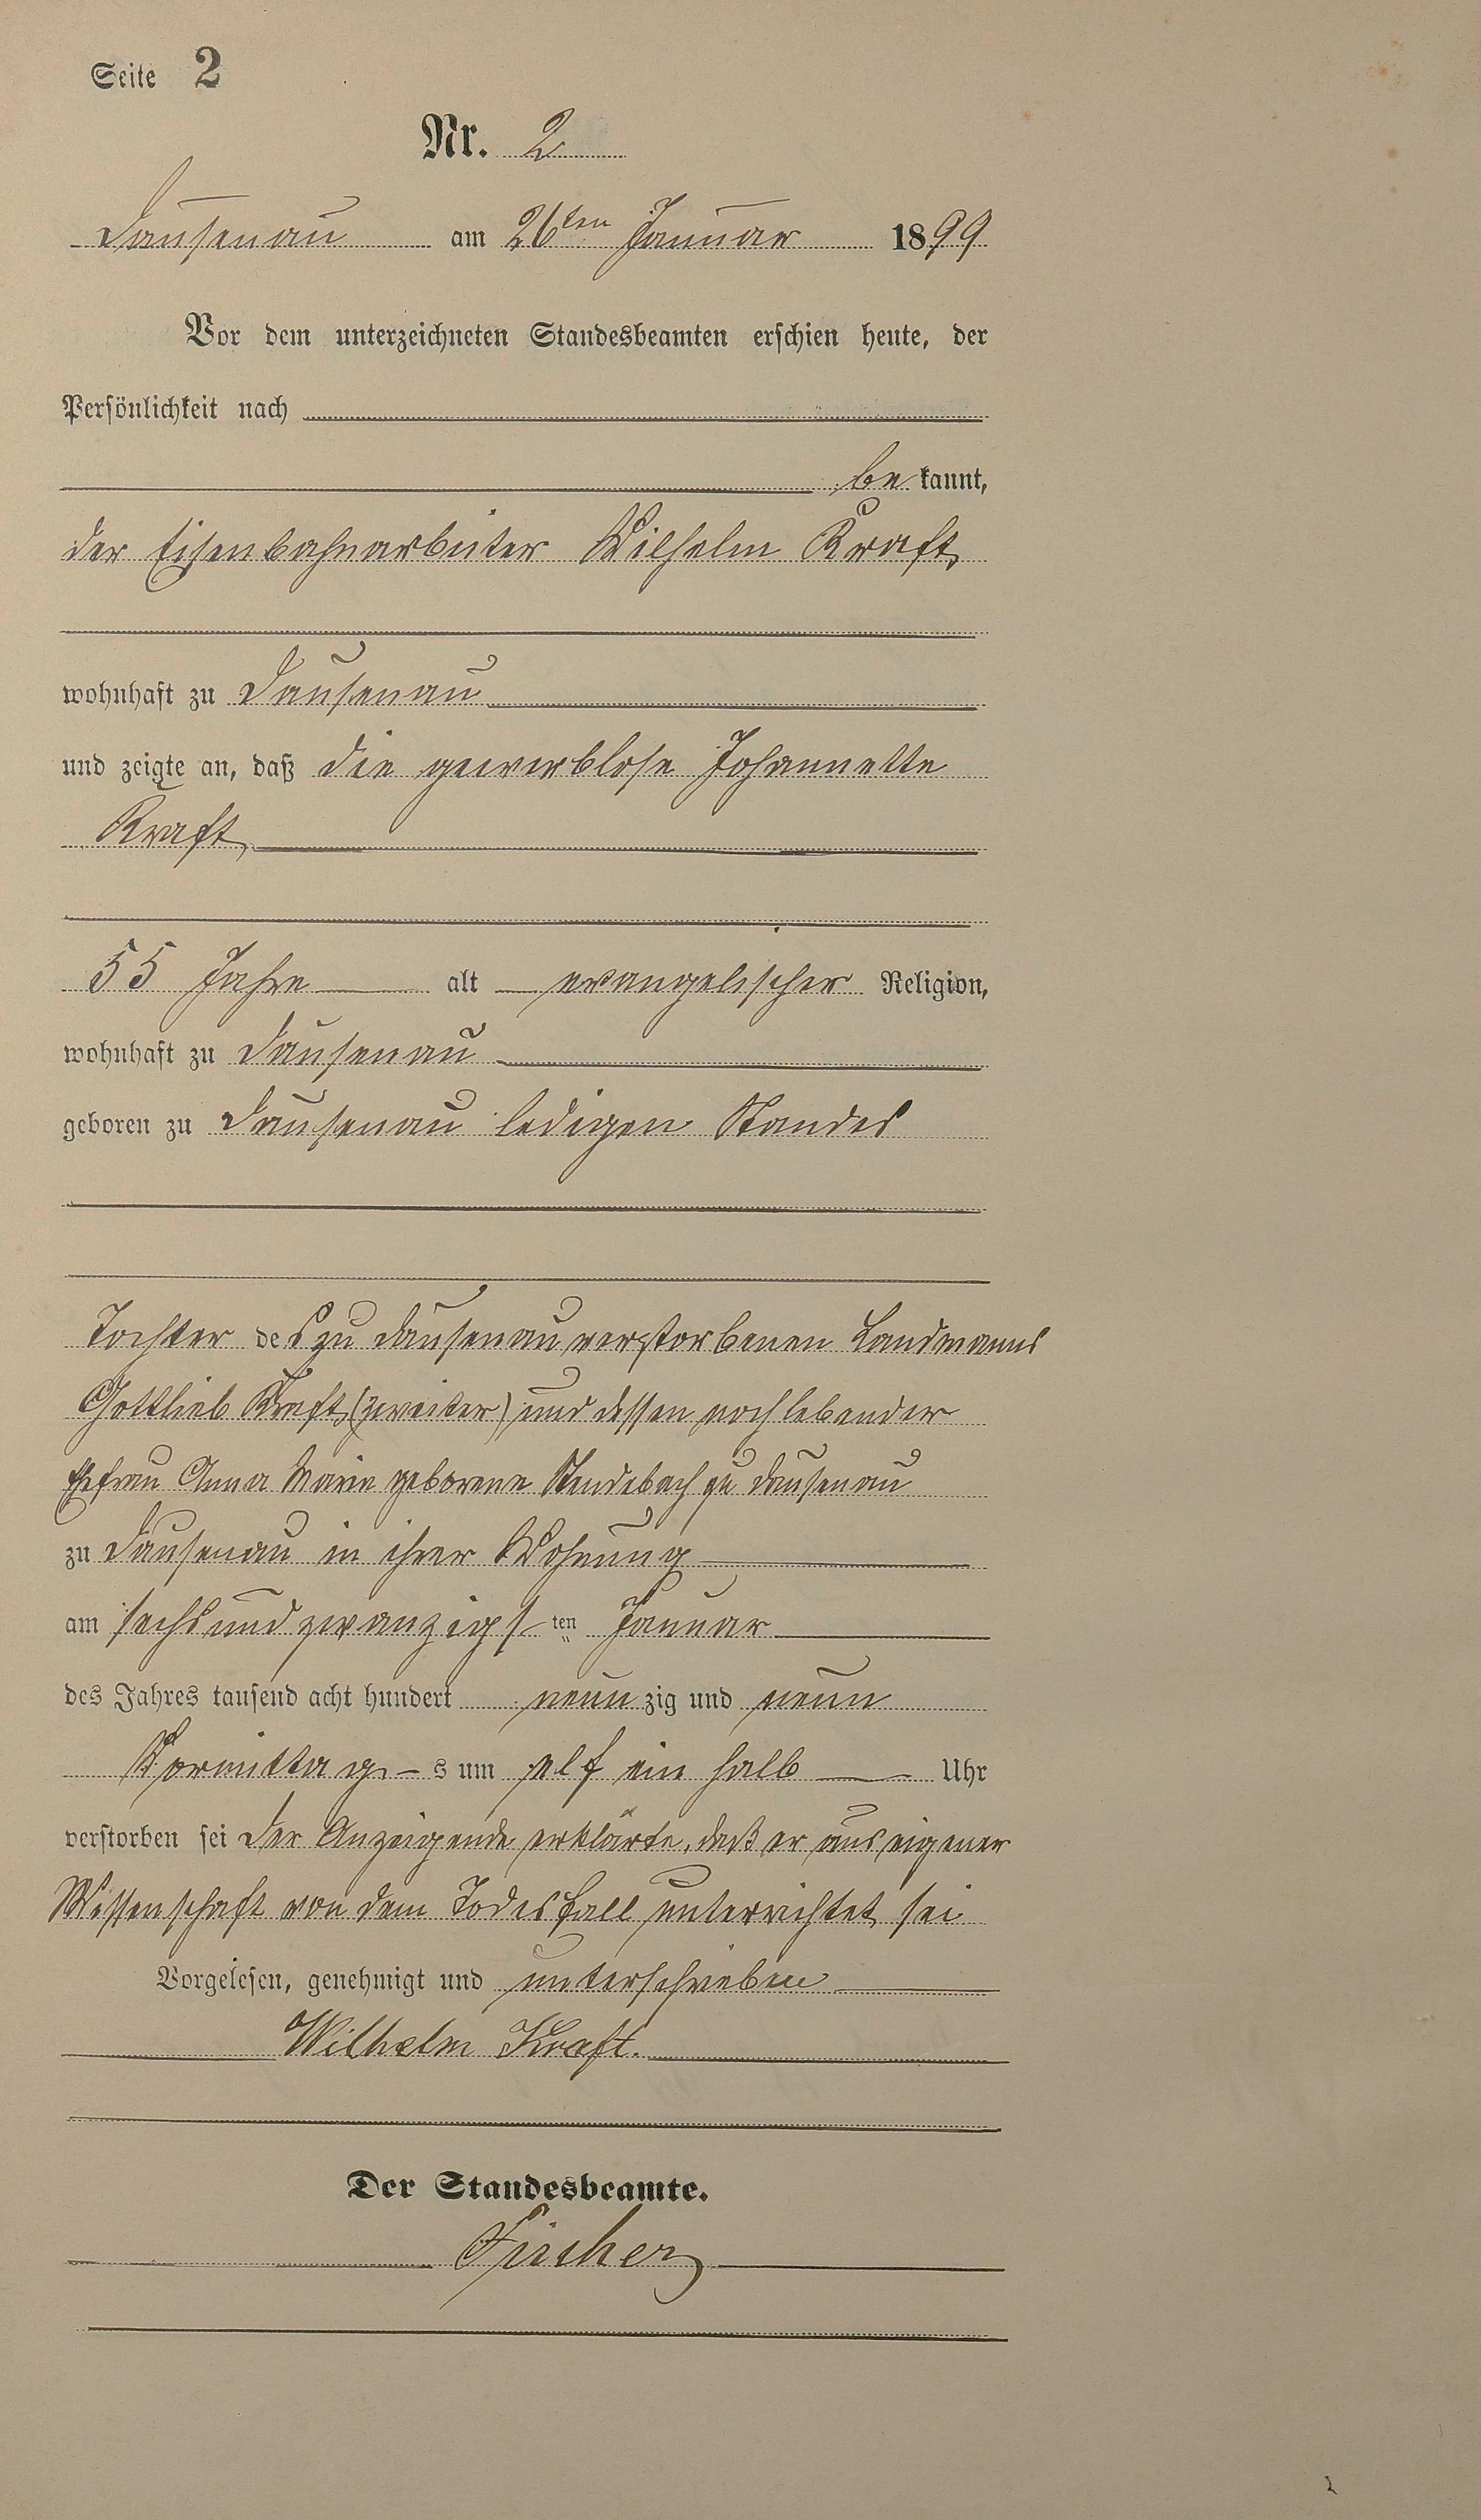 Seite 2
Nr. 2
Dausenau am 26ten Januar 1899
Vor dem unterzeichneten Standesbeamten erschien heute, der
Persönlichkeit nach
bekannt,
der Eisenbahnarbeiter Wilhelm Kraft,
wohnhaft zu Dausenau
und zeigte an, daß die gewerblose Johannette
Kraft,
55 Jahre alt evangelischer Religion,
wohnhaft zu Dausenau
geboren zu Dausenau ledigen Standes
Tochter des zu Dausenau verstorbenen Landmanns
Gottlieb Kraft (zweiter) und dessen noch lebender
Ehefrau Anna Marie geborene Stendebach zu Dausenau
zu Dausenau in ihrer Wohnung
am sechsundzwanzigsten Januar
des Jahres tausend acht hundert neunzig und neun
Vormittags um elf ein halb Uhr
verstorben sei der Anzeigende erklärte, daß er aus eigener
Wissenschaft von dem Todesfall unterrichtet sei
Vorgelesen, genehmigt und unterschrieben
Wilhelm Kraft.
Der Standesbeamte.
Fischer